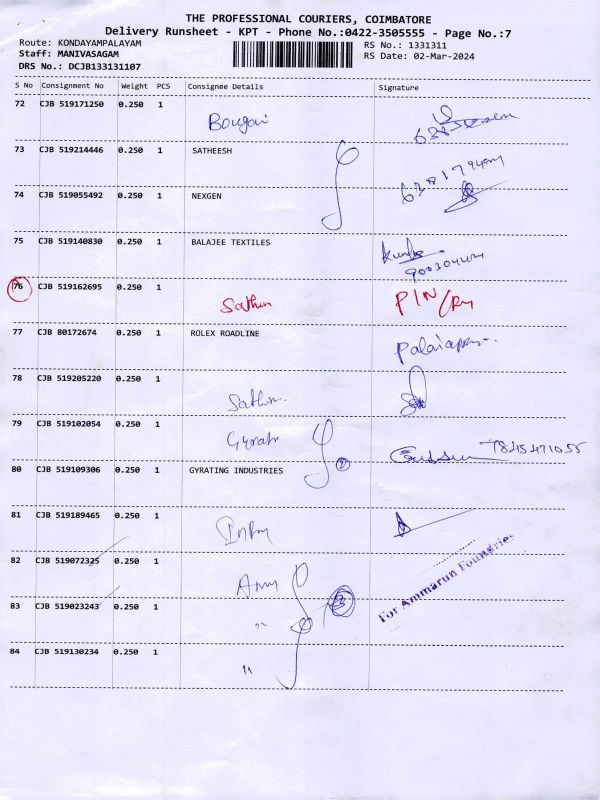 THE PROFESSIONAL COURIERS, COIMBATORE
Delivery Runsheet - KPT - Phone No.:0422-3505555 - Page No.:7
Route: KONDAYAMPALAYAM
RS No.: 1331311
Staff: MANIVASAGAM
RS Date: 02-Mar-2024
DRS No.: DCJB133131107
S No Consignment No Weight PCS Consignee Details Signature
72 CJB 519171250 0.250 1
73 CJB 519214446 0.250 1 SATHEESH
74 CJB 519055492 0.250 1 NEXGEN
75 CJB 519140830 0.250 1 BALAJEE TEXTILES
76 CJB 519162695 0.250 1 PIN
77 CJB 80172674 0.250 1 ROLEX ROADLINE
78 CJB 519205220 0.250 1
79 CJB 519102054 0.250 1 7845471055
80 CJB 519109306 0.250 1 GYRATING INDUSTRIES
81 CJB 519189465 0.250 1
82 CJB 519072325 0.250 1
For Ammarun Foundries
83 CJB 519023243 0.250 1 "
84 CJB 519130234 0.250 1 "